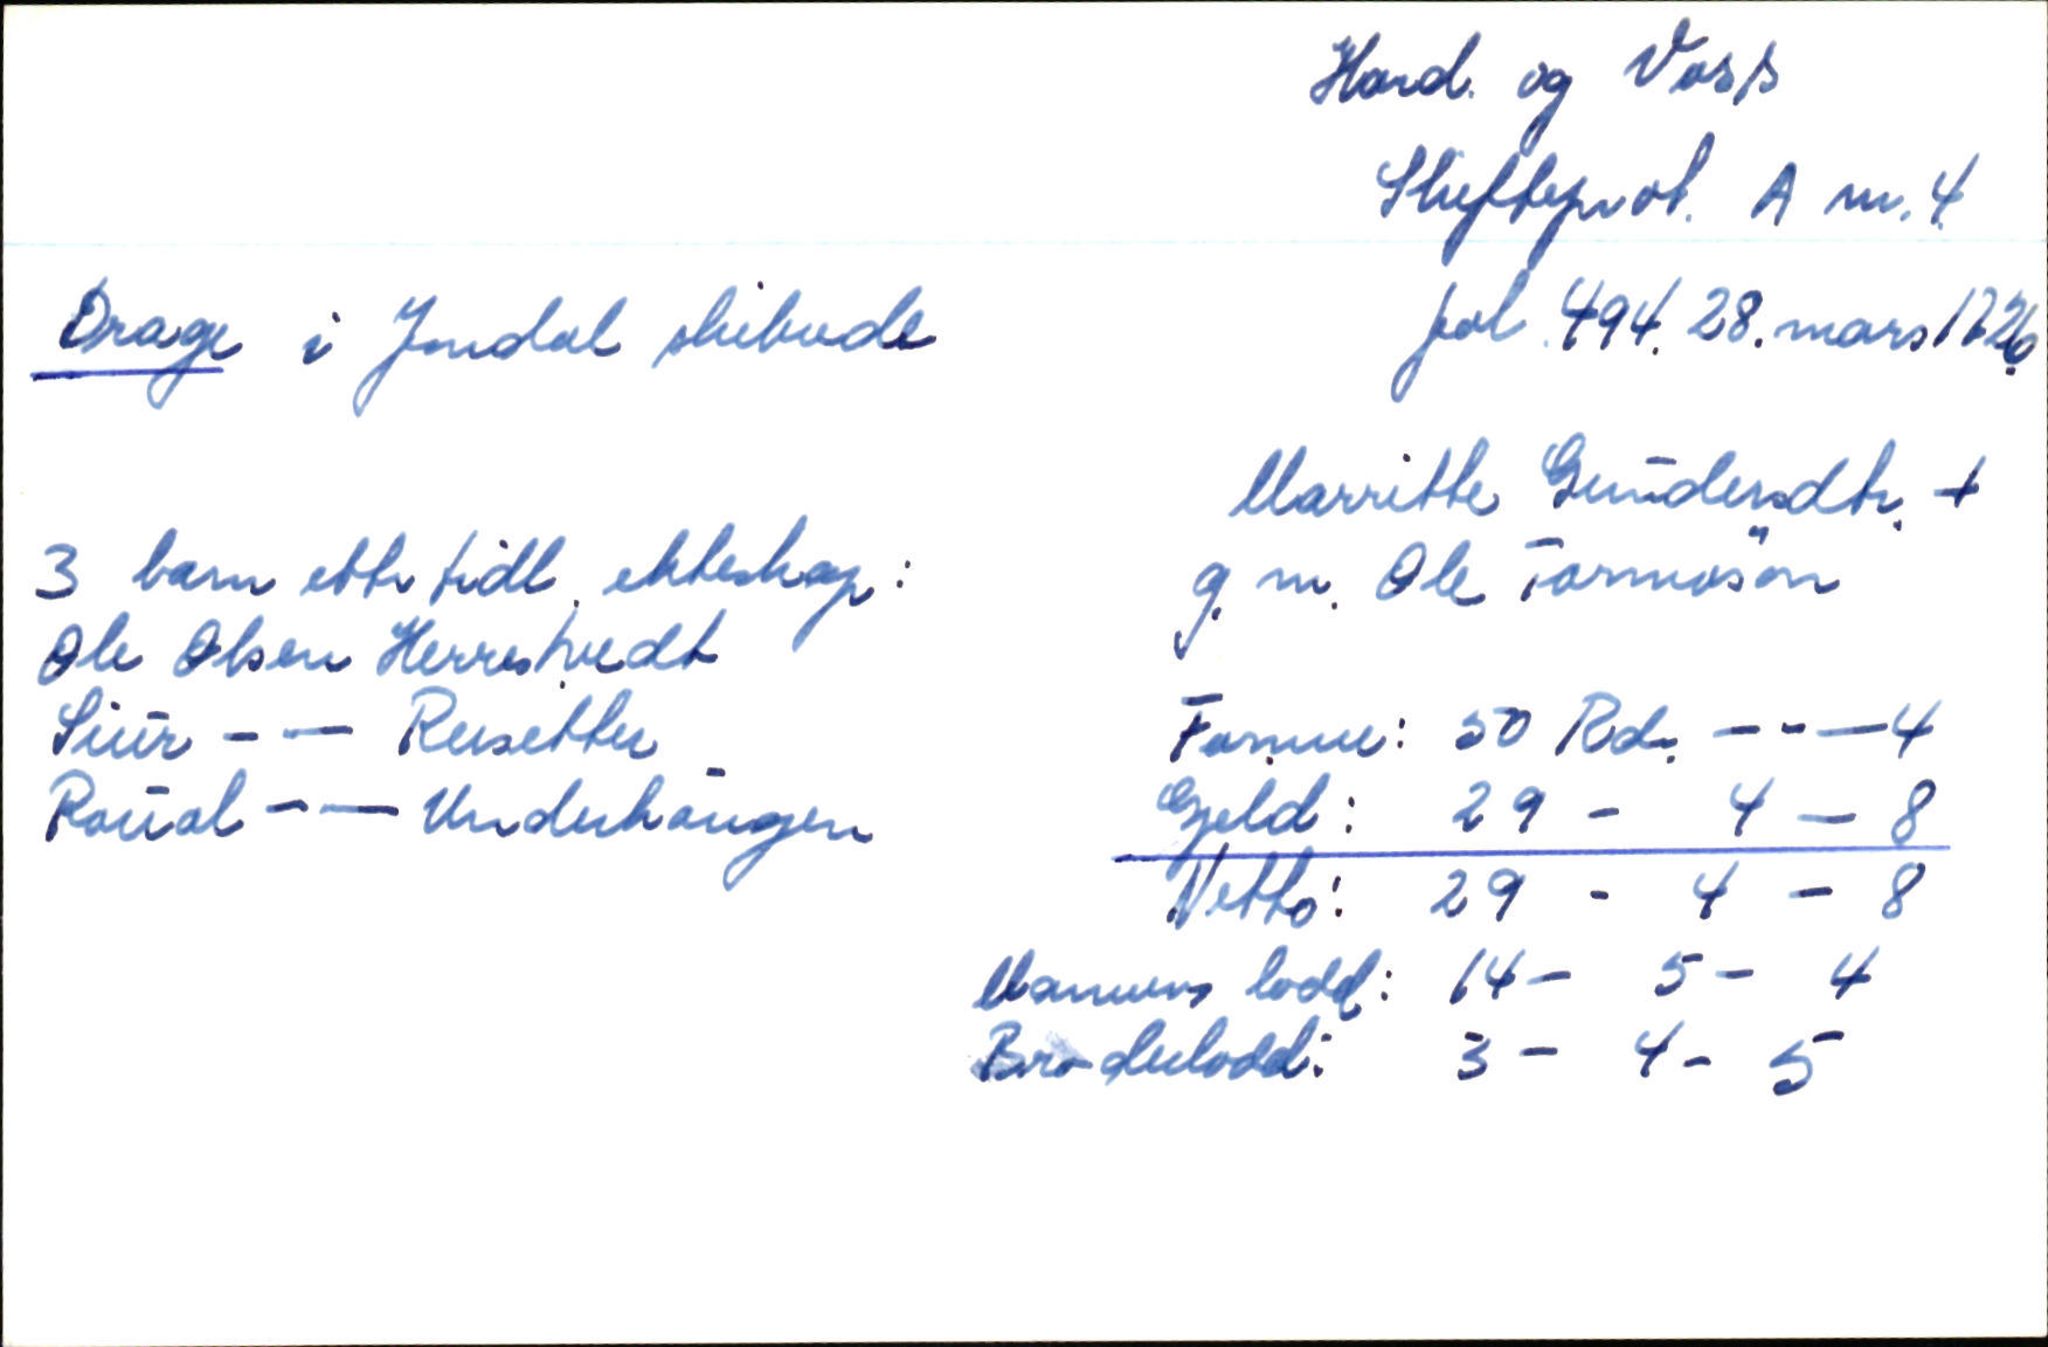 Hard. og Voss
Skifteprot. A nr. 4
Drage i Jondal skibrede
fol. 494. 28. mars 1726.
Marritte Gundersdtr. +
g. m. Ole Tormosön
3 barn ettr tidl. ekteskap:
Ole Olsen Herrestvedt
Siur - — Reisetter
Roual - — Underhaugen
Formue: 50 Rd. - - — 4
Gjeld: 29 - 4 — 8
Netto: 29 - 4 - 8
Mannens lodd: 14 - 5 - 4
Broderlodd: 3 - 4 - 5